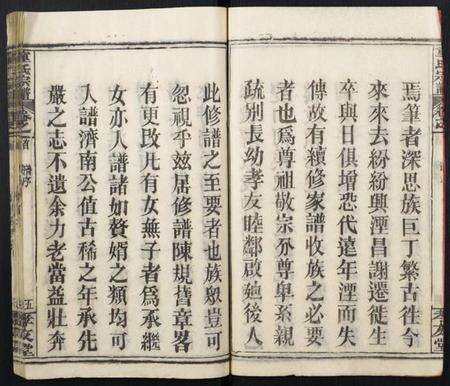 焉筆者深思族巨丁繁古往今
來來去紛紛興湮昌謝遷徙生
卒與日俱增恐代遠年湮而失
傳故有續修家譜收族之必要
者也為尊祖敬宗列尊卑系親
疏別長幼孝友睦鄰啟廸後人
此修譜之至要者也族眾豈可
忽視乎茲屆修譜陳規搭章畧
有更改凡有女無子者為承繼
女亦入譜諸如贅婿之類均可
入譜濟南公值古稀之年承先
嚴之志不遺余力老當益壯奔
童氏宗譜
卷之首
譜序
五
孝友堂